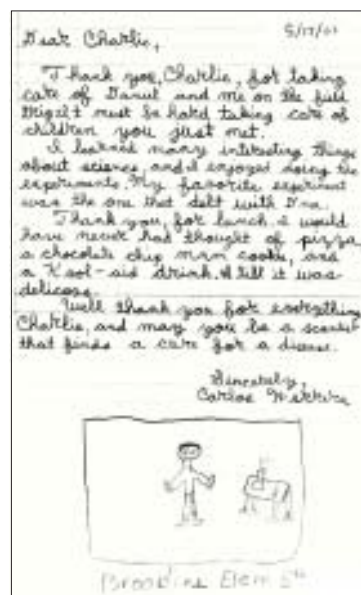 5/17/01
Dear Charlie,
Thank you, Charlie, for taking
care of and me on the field
trip. It must be hard taking care of
children you just met.
I learned many interesting things
about science, and I enjoyed doing the
experiments. My favorite experiment
was the one that delt with Dna.
Thank you, for lunch. I would
have never had thought of pizza,
a chocolate chip man cookie, and
a Kool-aid drink. it was
Well thank you for everything
Charlie, and may you be a
that finds a cure for a disease.
Sincerely,
Carlos
Elem